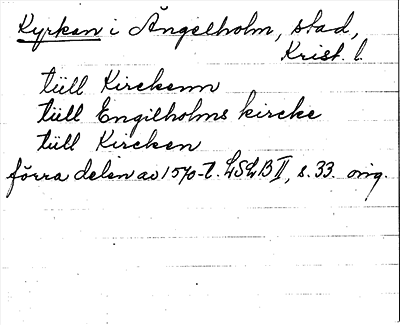 Kyrkan i Ängelholm, stad,
Krist. l.
tüll Kirckenn
tüll Engilholms kircke
tüll Kircken
förra delen av 1570-t. LSLB II, s. 33. orig.